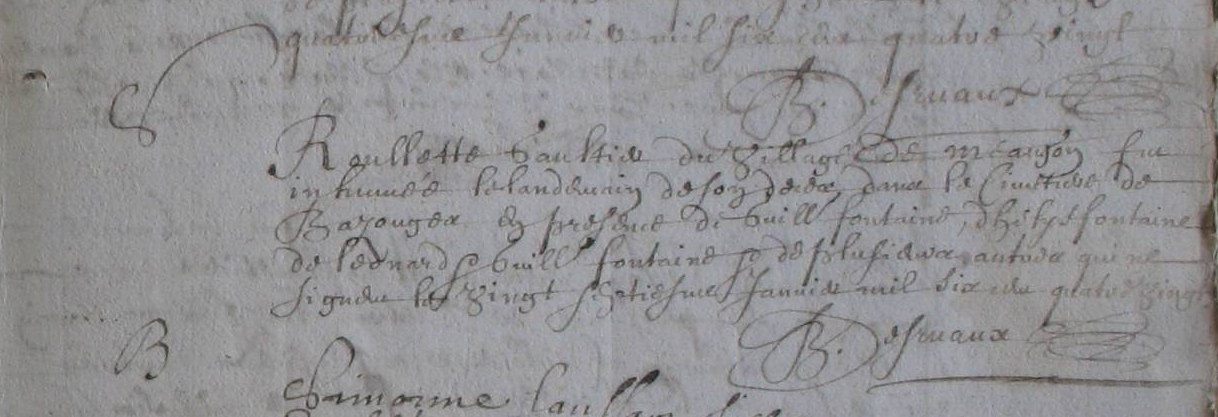 quatorsiesme Janvier mil six cens quatre vingt
B. Desruaux
S
Roullette Gaultier du village de meauson fut
inhumée le landemain de son deces dans le Cimetiere de
Bazouges en presence de Guill fontaine, fontaine
de leonard Guill fontaine & de plusieurs autres qui ne
signent le vingt septiesme Janvier mil six cens quatre vingt
B. Desruaux
B
Simonne